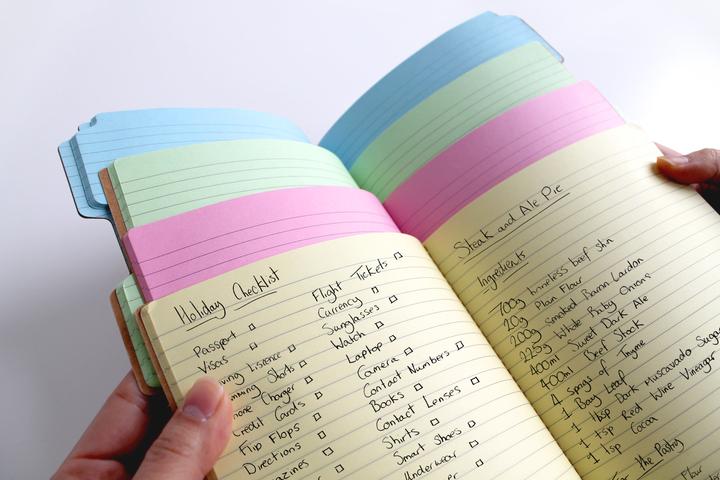 Holiday Checklist
Passport
Visas
Credit Cards
Flip Flops
Directions
Flight Tickets
Currency
Sunglasses
Watch
Laptop
Camera
Contact Numbers
Books
Contact Lenses
Shirts
Smart Shoes
Underwear
Steak and Ale Pie
Ingredients
700g boneless beef shin
20g Plain Flour
200g smoked Bacon Lardon
225g White Baby Onions
400ml Sweet Dark Ale
400ml Beef Stock
4 sprays of Thyme
1 Bay Leaf
1 tbsp Dark Muscavado
1 tsp Red Wine Vinegar
1 tsp Cocoa
the Pastry
Flour